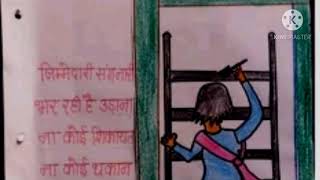 जिम्मेदारी संग नारी
भर रही है उड़ान
ना कोई शिकायत
ना कोई थकान
KINEMASTER